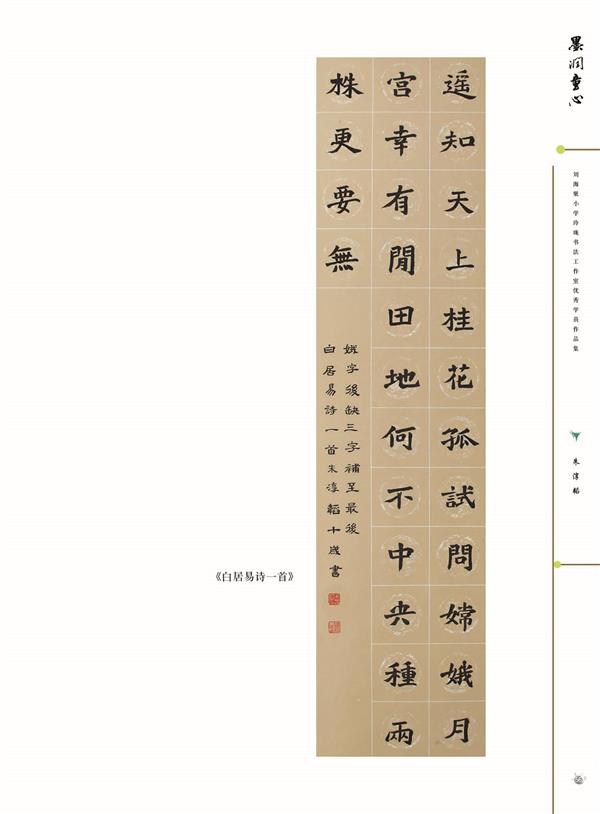 墨润童心
刘海粟小学书法工作室优秀学员作品集
朱淳韬
遥知天上桂花孤試問嫦娥月
宫幸有閒田地何不中央種兩
株更要無
娥字後缺三字補至最後
白居易詩一首朱淳韜十歲書
《白居易诗一首》